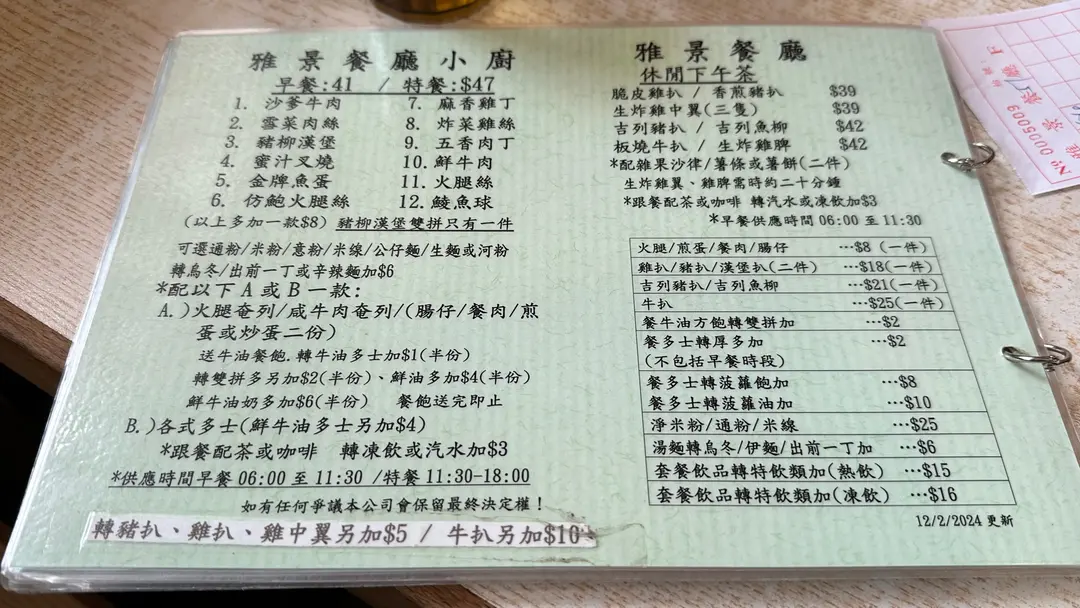 雅景餐廳小廚
早餐:41 / 特餐:$47
1. 沙爹牛肉
2. 雪菜肉絲
3. 豬柳漢堡
4. 蜜汁叉燒
5. 金牌魚蛋
6. 仿鮑火腿絲
7. 麻香雞丁
8. 炸菜雞絲
9. 五香肉丁
10. 鮮牛肉
11. 火腿絲
12. 鯪魚球
(以上多加一款$8) 豬柳漢堡雙拼只有一件
可選通粉/米粉/意粉/米線/公仔麵/生麵或河粉
轉烏冬/出前一丁或辛辣麵加$6
*配以下A或B一款:
A.)火腿奄列/咸牛肉奄列/(腸仔/餐肉/煎
蛋或炒蛋二份)
送牛油餐飽.轉牛油多士加$1(半份)
轉雙拼多另加$2(半份)、鮮油多加$4(半份)
鮮牛油奶多加$6(半份) 餐飽送完即止
B.)各式多士(鮮牛油多士另加$4)
*跟餐配茶或咖啡 轉凍飲或汽水加$3
*供應時間早餐 06:00 至 11:30 /特餐 11:30-18:00
如有任何爭議本公司會保留最終決定權!
轉豬扒、雞扒、雞中翼另加$5 / 牛扒另加$10
雅景餐廳
休閒下午茶
脆皮雞扒 / 香煎豬扒 $39
生炸雞中翼(三隻) $39
吉列豬扒 / 吉列魚柳 $42
板燒牛扒 / 生炸雞脾 $42
*配雜果沙律/薯條或薯餅(二件)
生炸雞翼、雞脾需時約二十分鐘
*跟餐配茶或咖啡 轉汽水或凍飲加$3
*早餐供應時間 06:00 至 11:30
火腿/煎蛋/餐肉/腸仔 …$8 (一件)
雞扒/豬扒/漢堡扒(二件) …$18(一件)
吉列豬扒/吉列魚柳 …$21(一件)
牛扒 …$25(一件)
餐牛油方飽轉雙拼加 …$2
餐多士轉厚多加 …$2
(不包括早餐時段)
餐多士轉菠蘿飽加 …$8
餐多士轉菠蘿油加 …$10
淨米粉/通粉/米線 …$25
湯麵轉烏冬/伊麵/出前一丁加 …$6
套餐飲品轉特飲類加(熱飲) …$15
套餐飲品轉特飲類加(凍飲) …$16
12/2/2024 更新
Nº 0005009